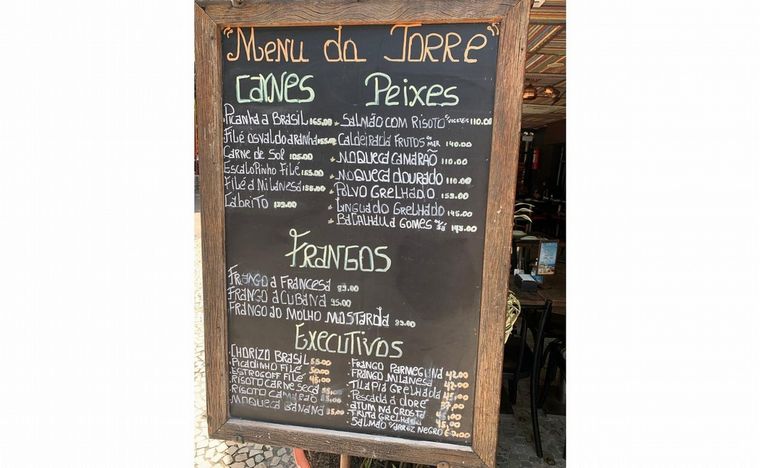 "MENU da TORRE"
CARNES
PICANHA A BRASIL 165,00
FILÉ OSVALDO ARANHA
CARNE DE SOL 105.00
ESCALOPINHO FILÉ 155.00
FILÉ A MILANESA 155.00
CABRITO
PEIXES
SALMÃO COM RISOTO 110.00
CALDEIRADA FRUTOS DO MAR 140.00
MOQUECA CAMARÃO 110.00
MOQUECA DOURADO 110.00
POLVO GRELHADO 159.00
LINGUADO GRELHADO 145.00
BACALHAU A GOMES DE SÁ 145.00
FRANGOS
FRANGO A FRANCESA 89.00
FRANGO A CUBANA 95.00
FRANGO AO MOLHO MOSTARDA 89.00
EXECUTIVOS
CHORIZO BRASIL 55.00
PICADINHO FILÉ 50.00
ESTROGOFF FILÉ 45,00
RISOTO CARNE SECA
RISOTO CAMARÃO
MOQUECA BANANA 35,00
FRANGO PARMEGIANA 42,00
FRANGO MILANESA 42,00
TILAPIA GRELHADA
PESCADA A DORÊ
ATUM NA CROSTA
TRUTA GRELHADA 45,00
SALMÃO C/ARROZ NEGRO